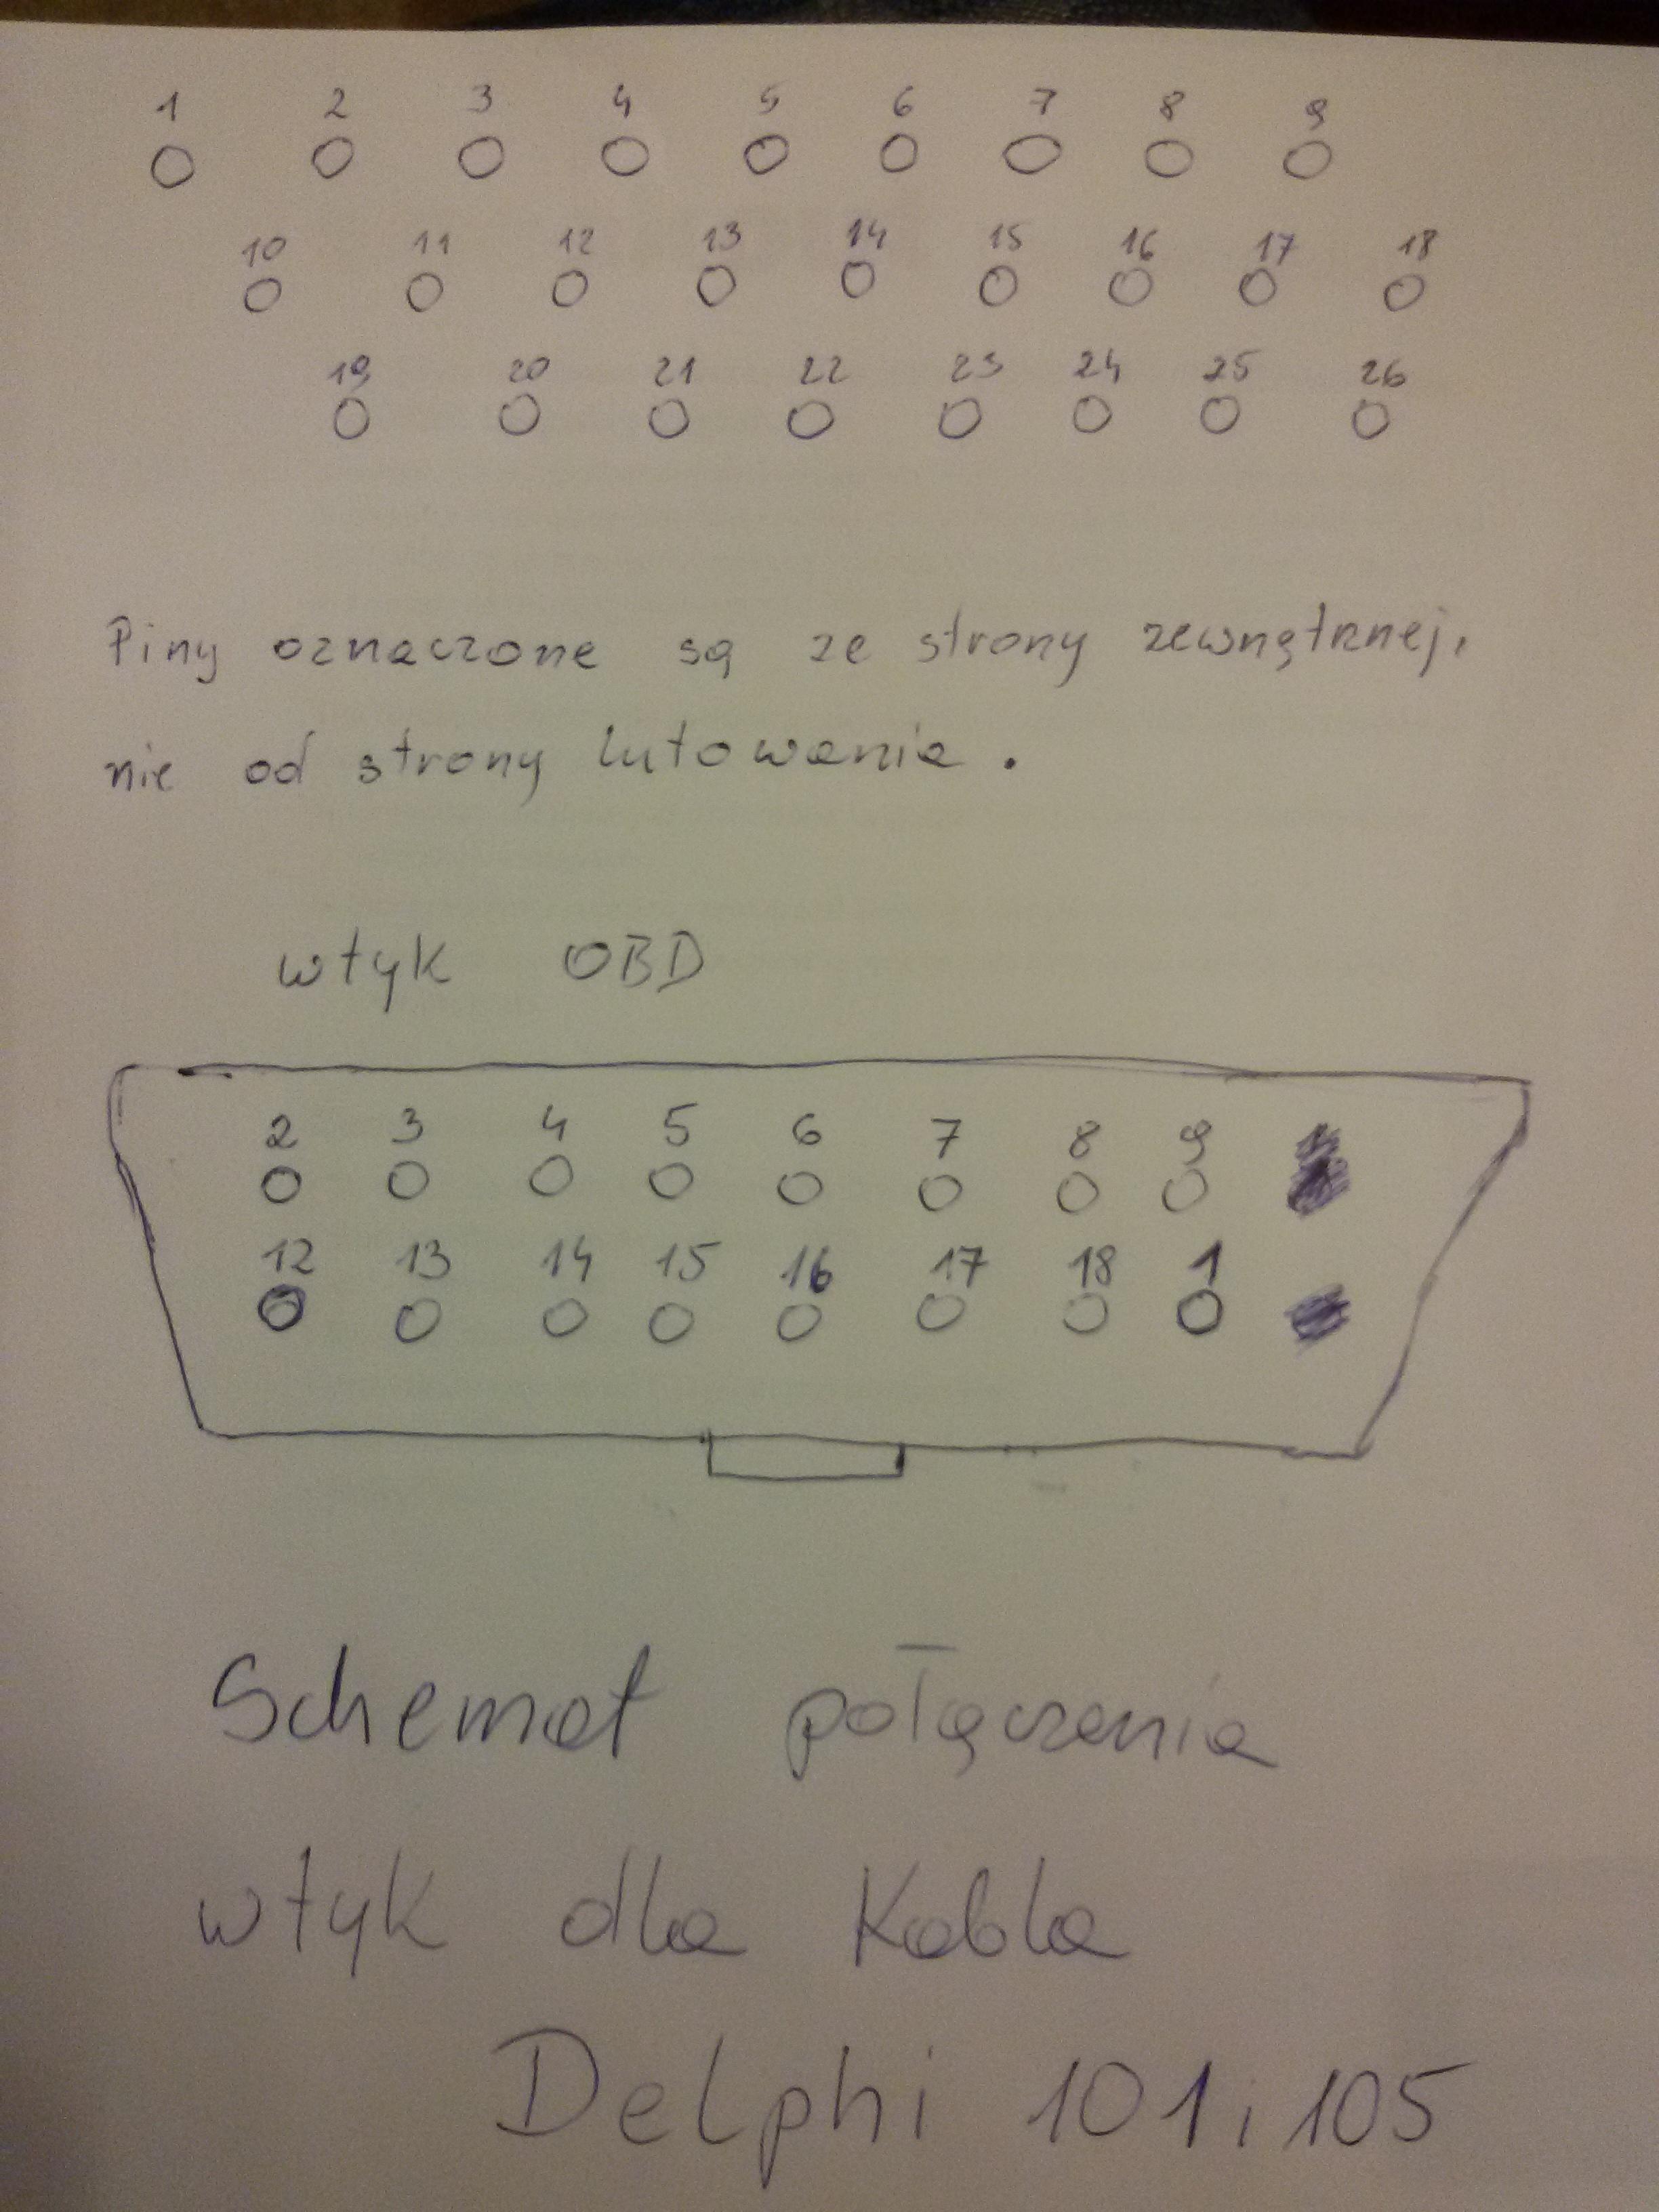 1 2 3 4 5 6 7 8 9
10 11 12 13 14 15 16 17 18
19 20 21 22 23 24 25 26
Piny oznaczone są ze strony zewnętrznej,
nie od strony lutowania.
wtyk OBD
2 3 4 5 6 7 8 9
12 13 14 15 16 17 18 1
Schemat połączenia
wtyk dla Kabla
Delphi 101i105